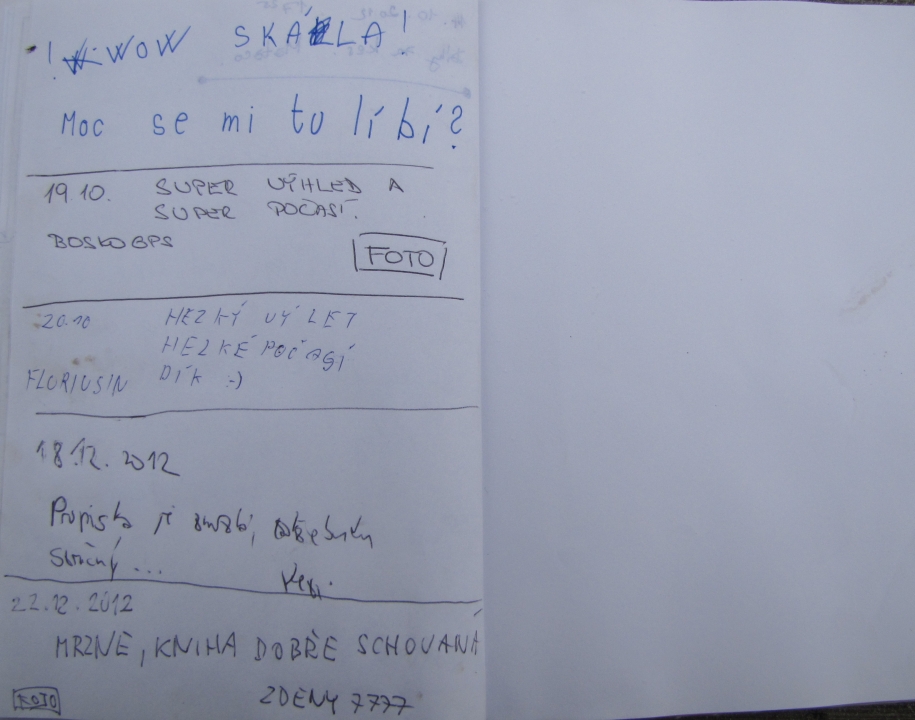 ! WOW SKÁLA !
Moc se mi tu líbí?
19.10. SUPER VÝHLED A
SUPER POČASÍ.
BOSKOGPS
FOTO
20.10 HEZKÝ VÝLET
HEZKÉ POČASÍ
FLORIUSIN DÍK :-)
18.12.2012
Propiska je
...
22.12.2012
MRZNE, KNIHA DOBŘE SCHOVANÁ
FOTO ZDENY 7777